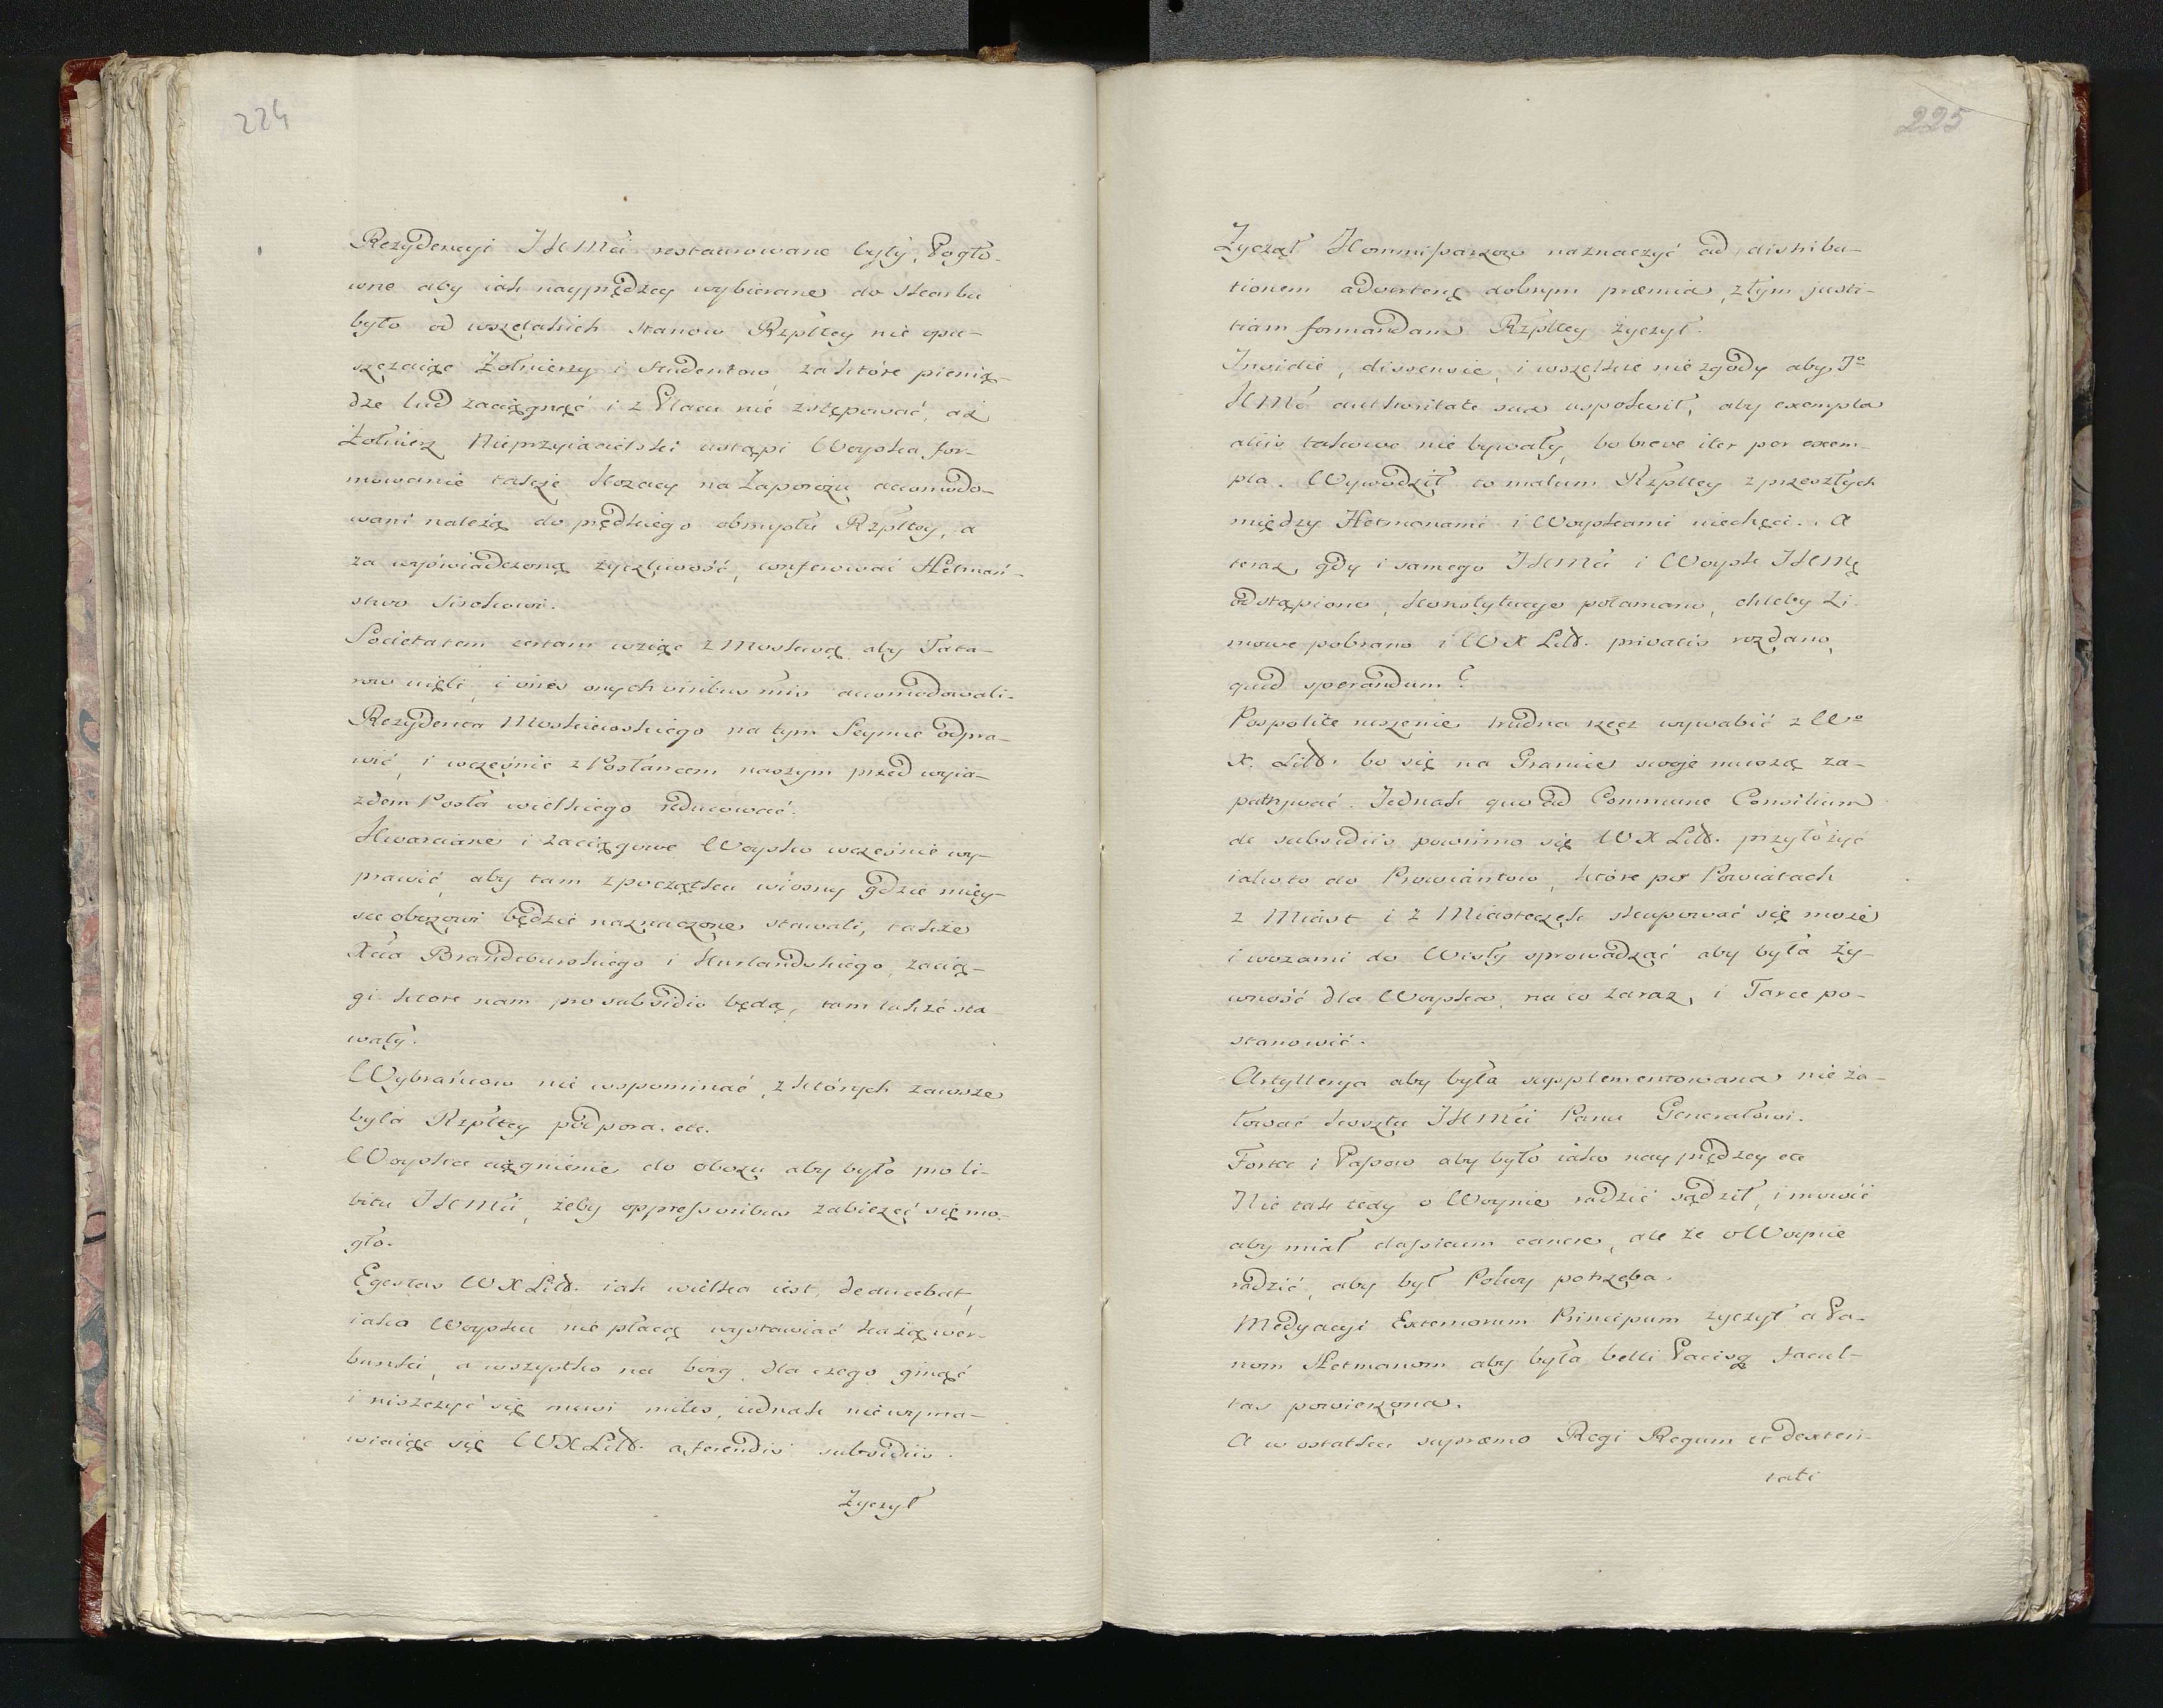 224
Rezydencyi JKMći restaurowane były, Pogło-
wne aby iak nayprędzey wybierane do Skarbu
było od wszelakich stanow Rzpltey nie opu-
szczaiąc Żołnierzy i Studentow za które pienią-
dze lud zaciągnąć i z Placu nie zstępować, aż
Żołnierz Nieprzyiacielski ustąpi Woyska for-
mowanie także Kozacy na Zaporożu accomodo-
wani należą do prędkiego obmysłu Rzpltey, a
za wyświadczoną życzliwość, conferować Hetmań-
stwo Sirkowi.
Societatem certam wziąć z Moskwą aby Tata-
row uięli, i vires onych viribus suis accomodowali.
Rezydenta Moskiewskiego na tym Seymie odpra-
wić, i wcześnie z Posłańcem naszym przed wyia-
zdem Posła wielkiego reducować.
Kwarciane i zaciągowe Woysko wcześnie wy-
prawić, aby tam z początku wiosny gdzie miey-
sce obozowi będzie naznaczone stawali, także
Xcia Brandeburskiego i Kurlandskiego zacią-
gi które nam pro subsidio będą, tam także sta-
wały.
Wybrańcow nie wspominać, z których zawsze
była Rzpltey podpora. etc.
Woyska ciągnienie do obozu aby było pro li-
bitu JKMći, żeby oppressoribus zabieżeć się mo-
gło.
Egestas WXLitt. iak wielka iest, deducebat,
iako Woysku nie płacą wystawiać każą wer-
bunki, a wszystko na borg, dla czego ginąć
i niszczyć się musi miles, iednak nie wyma-
wiaiąc się WXLitt. a ferendis subsidiis.
Życzył
225
Życzył Kommissarzow naznaczyć ad distribu-
tionem advertenę dobrym præmia, złym justi-
tiam formandam Rzpltey życzył.
Insidie, dissensie, i wszelkie niezgody aby Jº
KMć authoritate sua uspokoił, aby exempla
aliis takowe nie bywały, bo breve iter per exem-
pla. Wywodził to malum Rzpltey z przeszłych
między Hetmanami i Woyskami niechęci. A
teraz, gdy i samego JKMći i Woysk JKMę
odstąpiono, Konstytucye połamano, chleby Zi-
mowe pobrano i WX Litt. privatis rozdano,
quid sperandum?
Pospolite ruszenie trudna rzecz wywabić z Wº
X. Litt. bo się na Granice swoje muszą za-
patrywać. Jednak quo ad Commune Consilium
de subsidiis powinno się WX Litt. przyłożyć
iako to do Prowiantow, które po Powiatach
z Miast i z Miasteczek skupować się może
i wozami do Wisły sprowadzać aby była ży-
wność dla Woyska, na co zaraz, i Taxę po-
stanowić.
Artyllerya aby była supplementowana nie ża-
łować kosztu JKMći Panu Generałowi.
Fortec i Pasow aby było iako nayprędzey etc
Nie tak tedy o Woynie radzić sądził, i mowić
aby miał classicum canere, ale że o Woynie
radzić, aby był Pokoy potrzeba.
Medyacyi Externorum Principum życzył a Pa-
nom Hetmanom aby była belli Pacisq facul-
tas powierzona.
A w ostatku supremo Regi Regum et dexteri-
tati